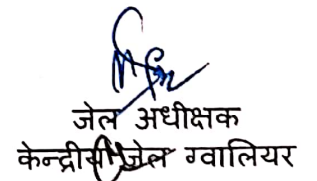 जेल अधीक्षक
केन्द्रीय जेल ग्वालियर